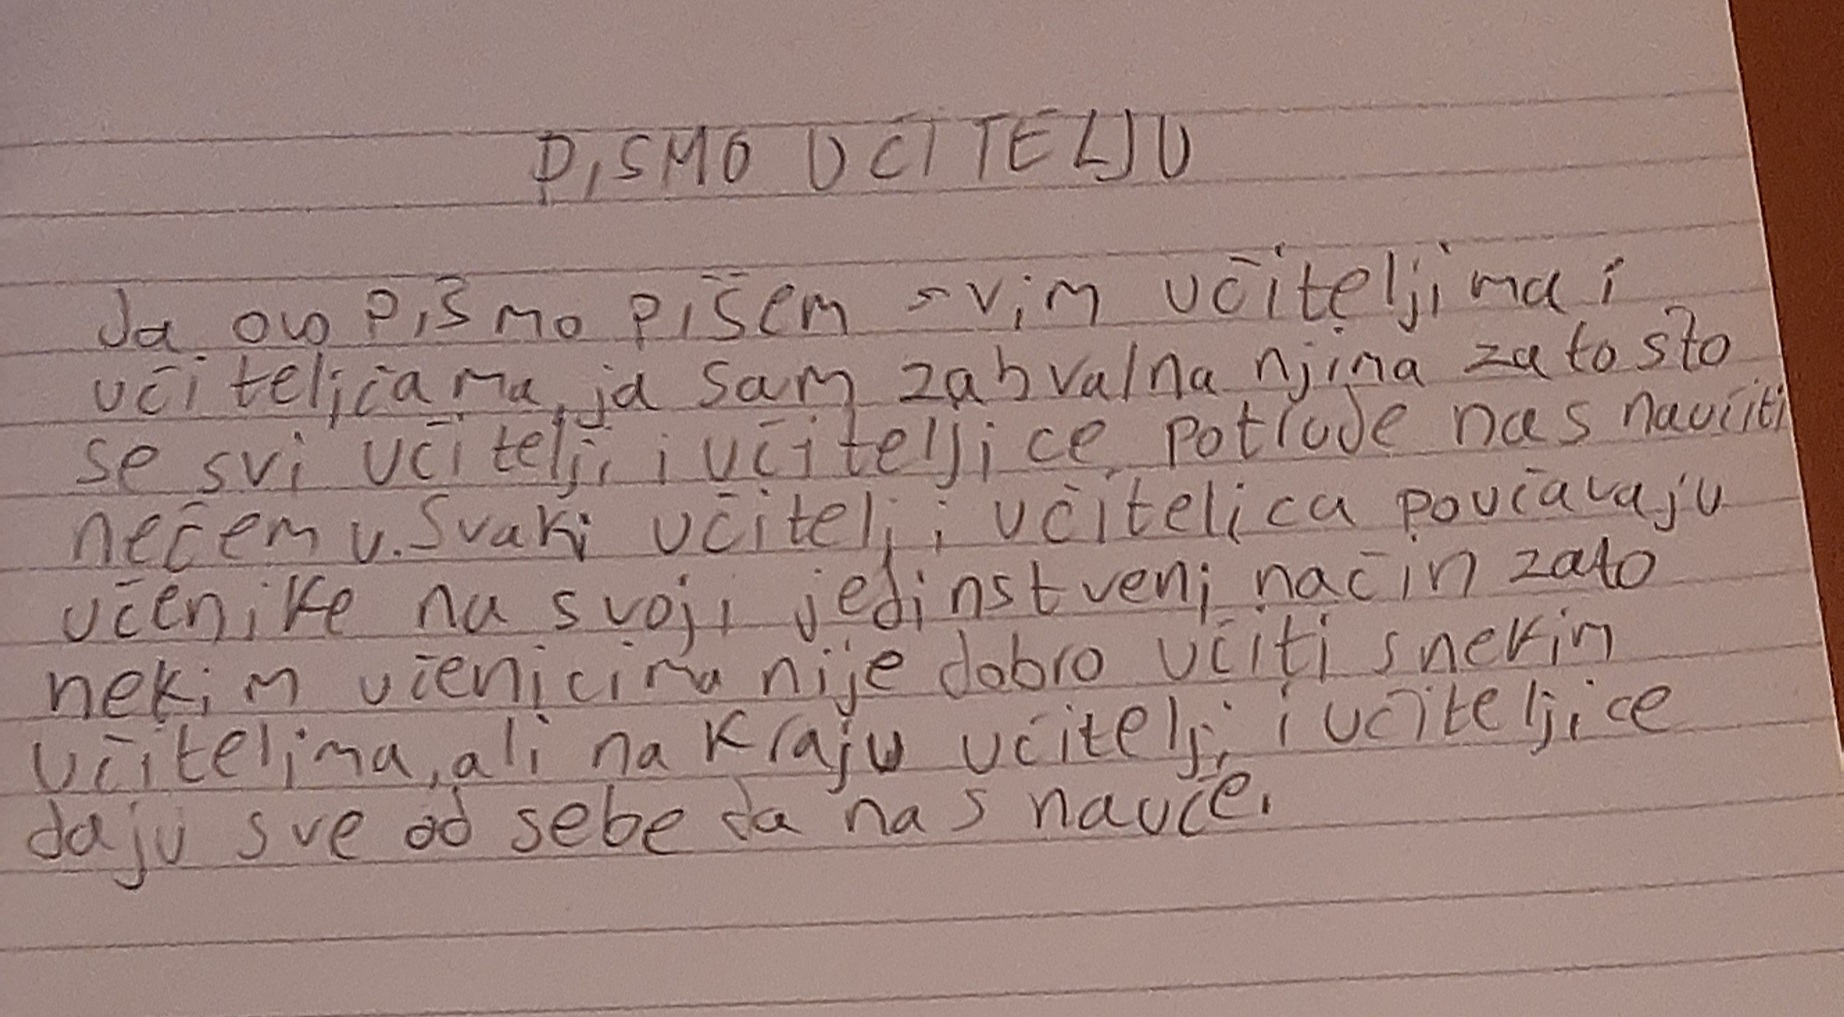 PISMO UČITELJU
Ja ovo pišmo pišem svim učiteljima i
učiteljicama, ja sam zahvalna njima zato što
se svi učitelji i učiteljice potrude nas naučiti
nečemu. Svaki učitelj i učitelica poučavaju
učenike na svoji jedinstveni način zato
nekim učenicima nije dobro učiti s nekim
učitelima, ali na kraju učitelji i učiteljice
daju sve od sebe da nas nauče.